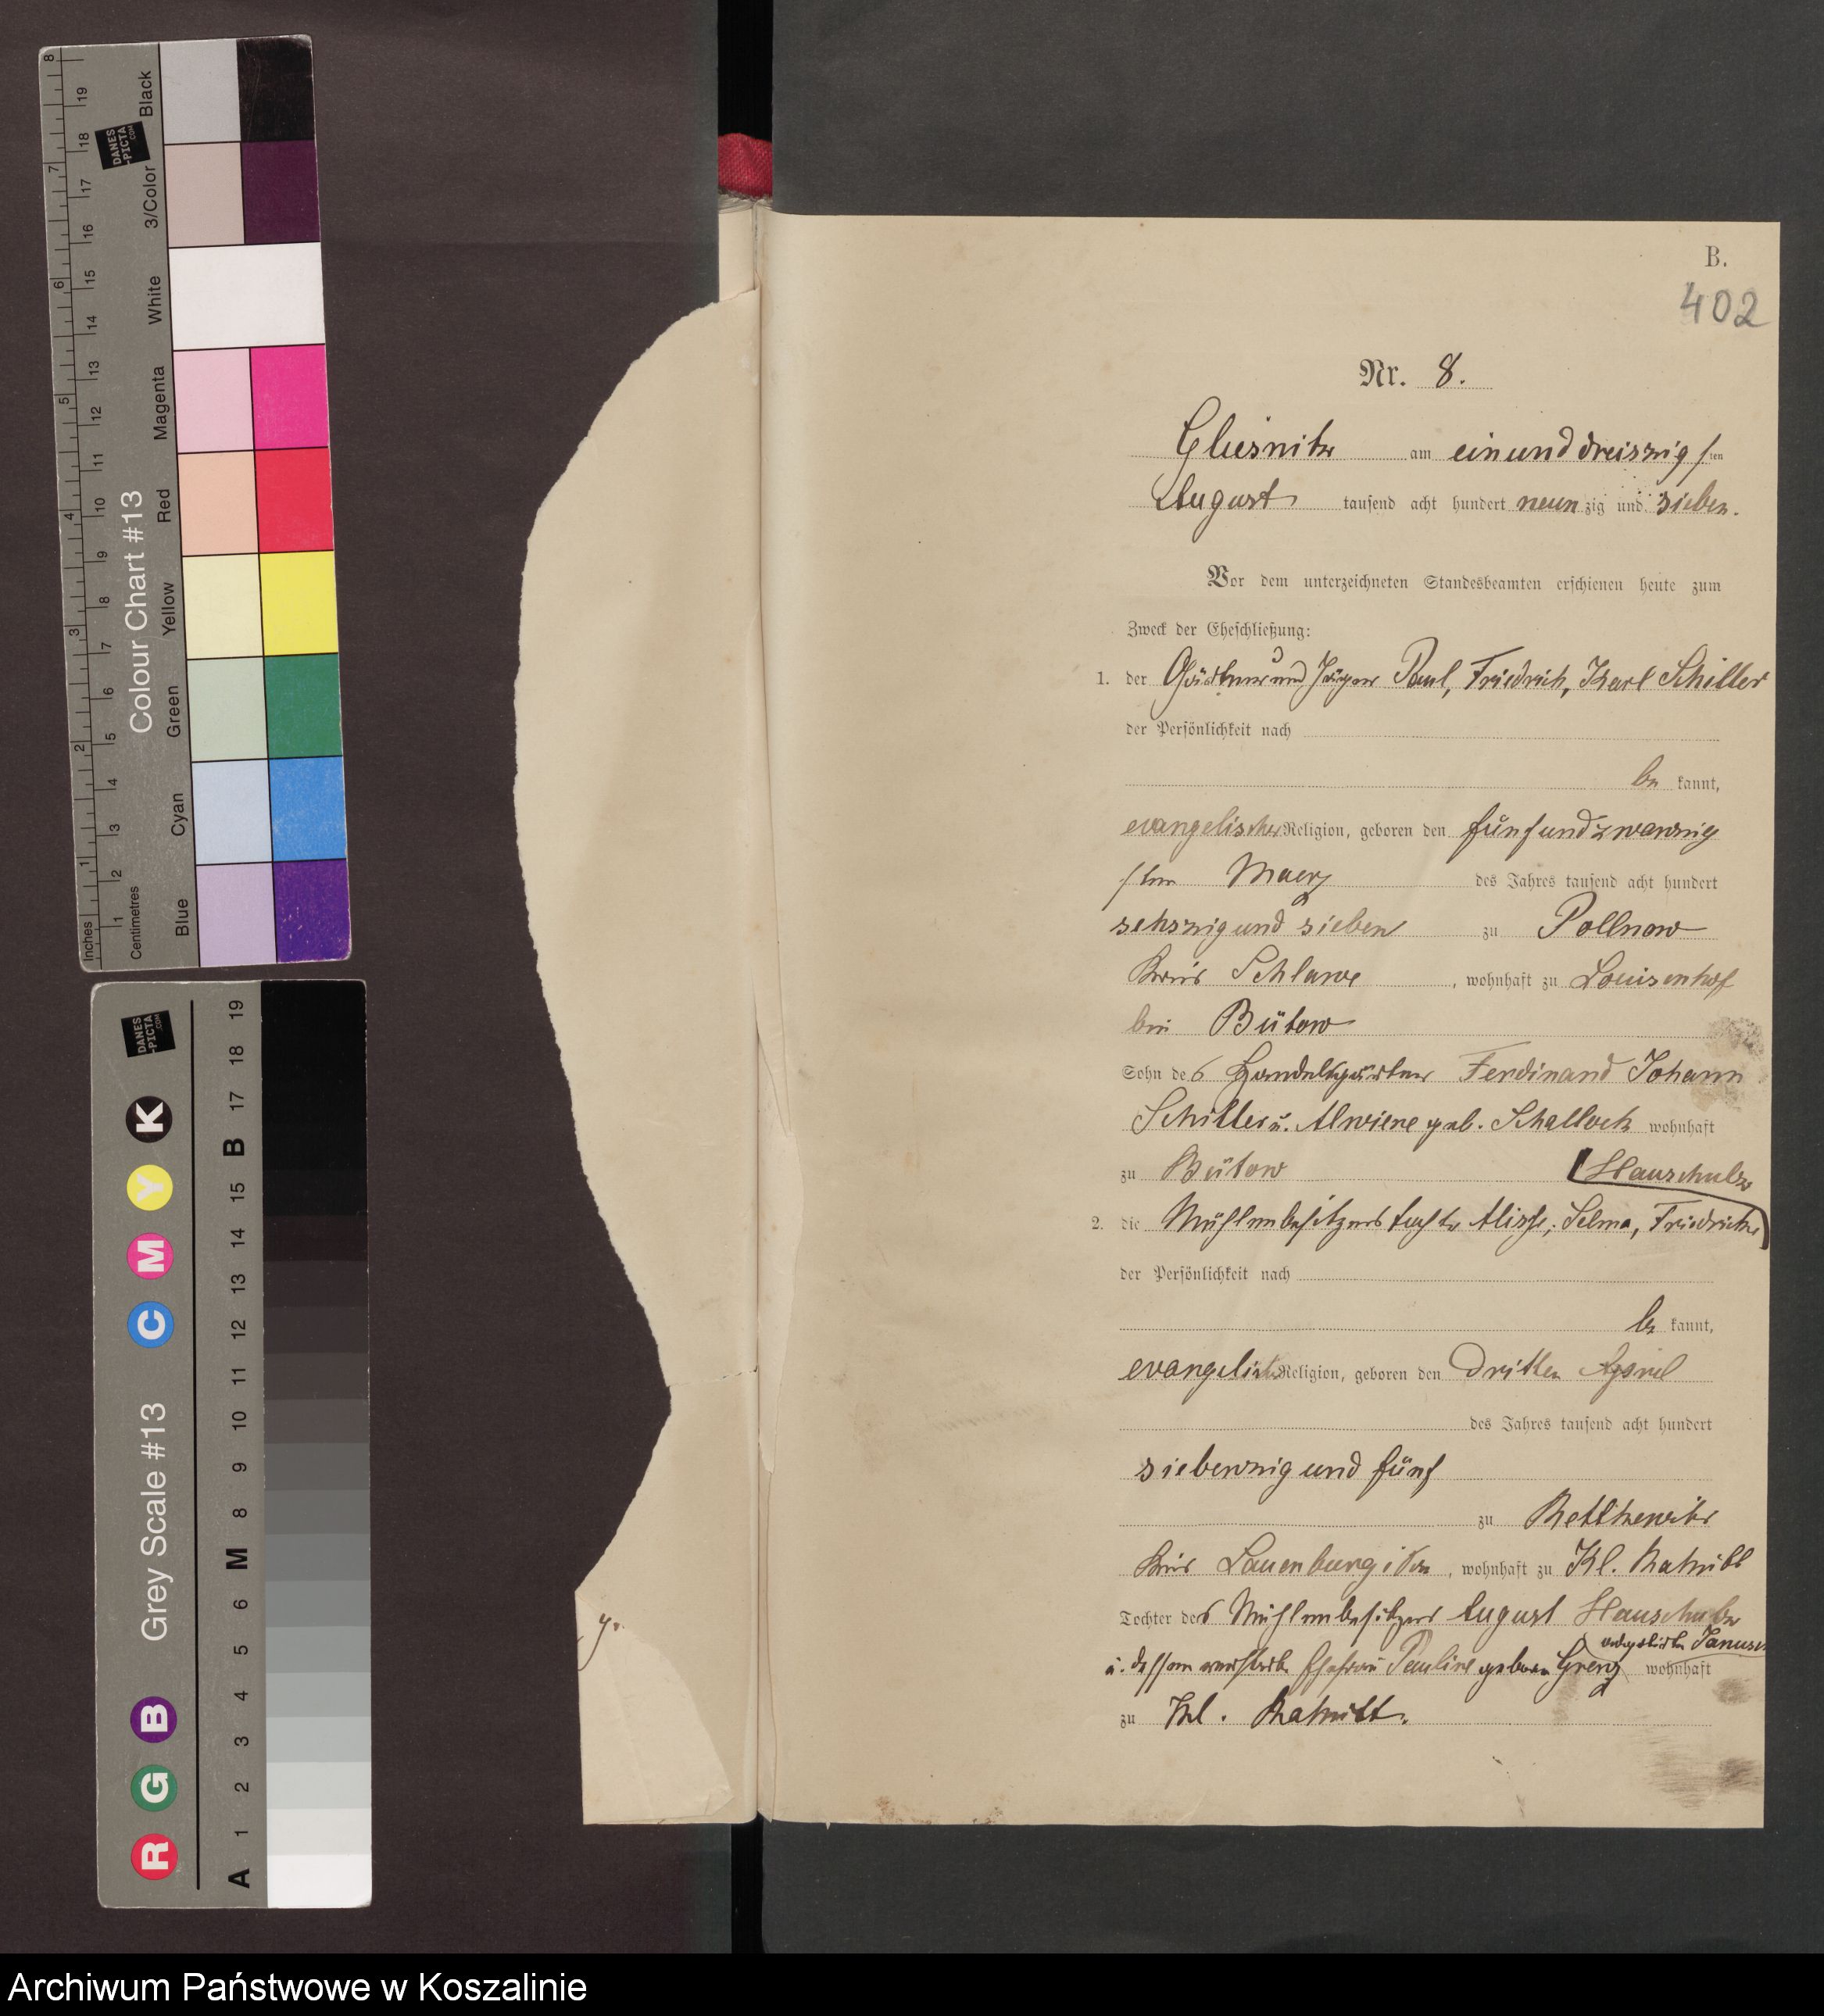 8
19
18
7
17
16
6
15
14
13
5
12
11
4
10
9
8
3
7
6
2
5
4
3
1
2
1
Inches
Centimetres
Colour Chart #13
Black
3/Color
White
Magenta
Red
Yellow
Green
Cyan
Blue
DANES
-PICTA
.COM
DANES
-PICTA
.COM
R G B Grey Scale #13 C M Y K
A 1 2 3 4 5 6 M 8 9 10 11 12 13 14 15 B 17 18 19
B.
402
Nr. 8.
Gliesnitz am einunddreiszigsten
August tausend acht hundert neunzig und sieben.
Vor dem unterzeichneten Standesbeamten erschienen heute zum
Zweck der Eheschließung:
1. der Gärtner und Jäger Paul, Friedrich, Karl Schiller
der Persönlichkeit nach
be kannt,
evangelischer Religion, geboren den fünfundzwanzig
sten Maerz des Jahres tausend acht hundert
sehszig und sieben zu Pollnow
Kreis Schlawe, wohnhaft zu Louisenhof
bei Bütow
Sohn des Handelsgärtner Ferdinand Johann
Schiller u. Alwiene geb. Schallock wohnhaft
zu Bütow
Hauschulz
2. die Mühlenbesitzerstochter Selma, Friedricke
der Persönlichkeit nach
be kannt,
evangelischer Religion, geboren den dritten April
des Jahres tausend acht hundert
siebenzig und fünf
zu Rettkewitz
Kreis Lauenburg i Pom, wohnhaft zu Kl.
Tochter des Mühlenbesitzers August Hauschulz
u. dessen verstorbene Ehefrau Pauline geboren Grenz wohnhaft
zu Kl.
y.
Archiwum Państwowe w Koszalinie